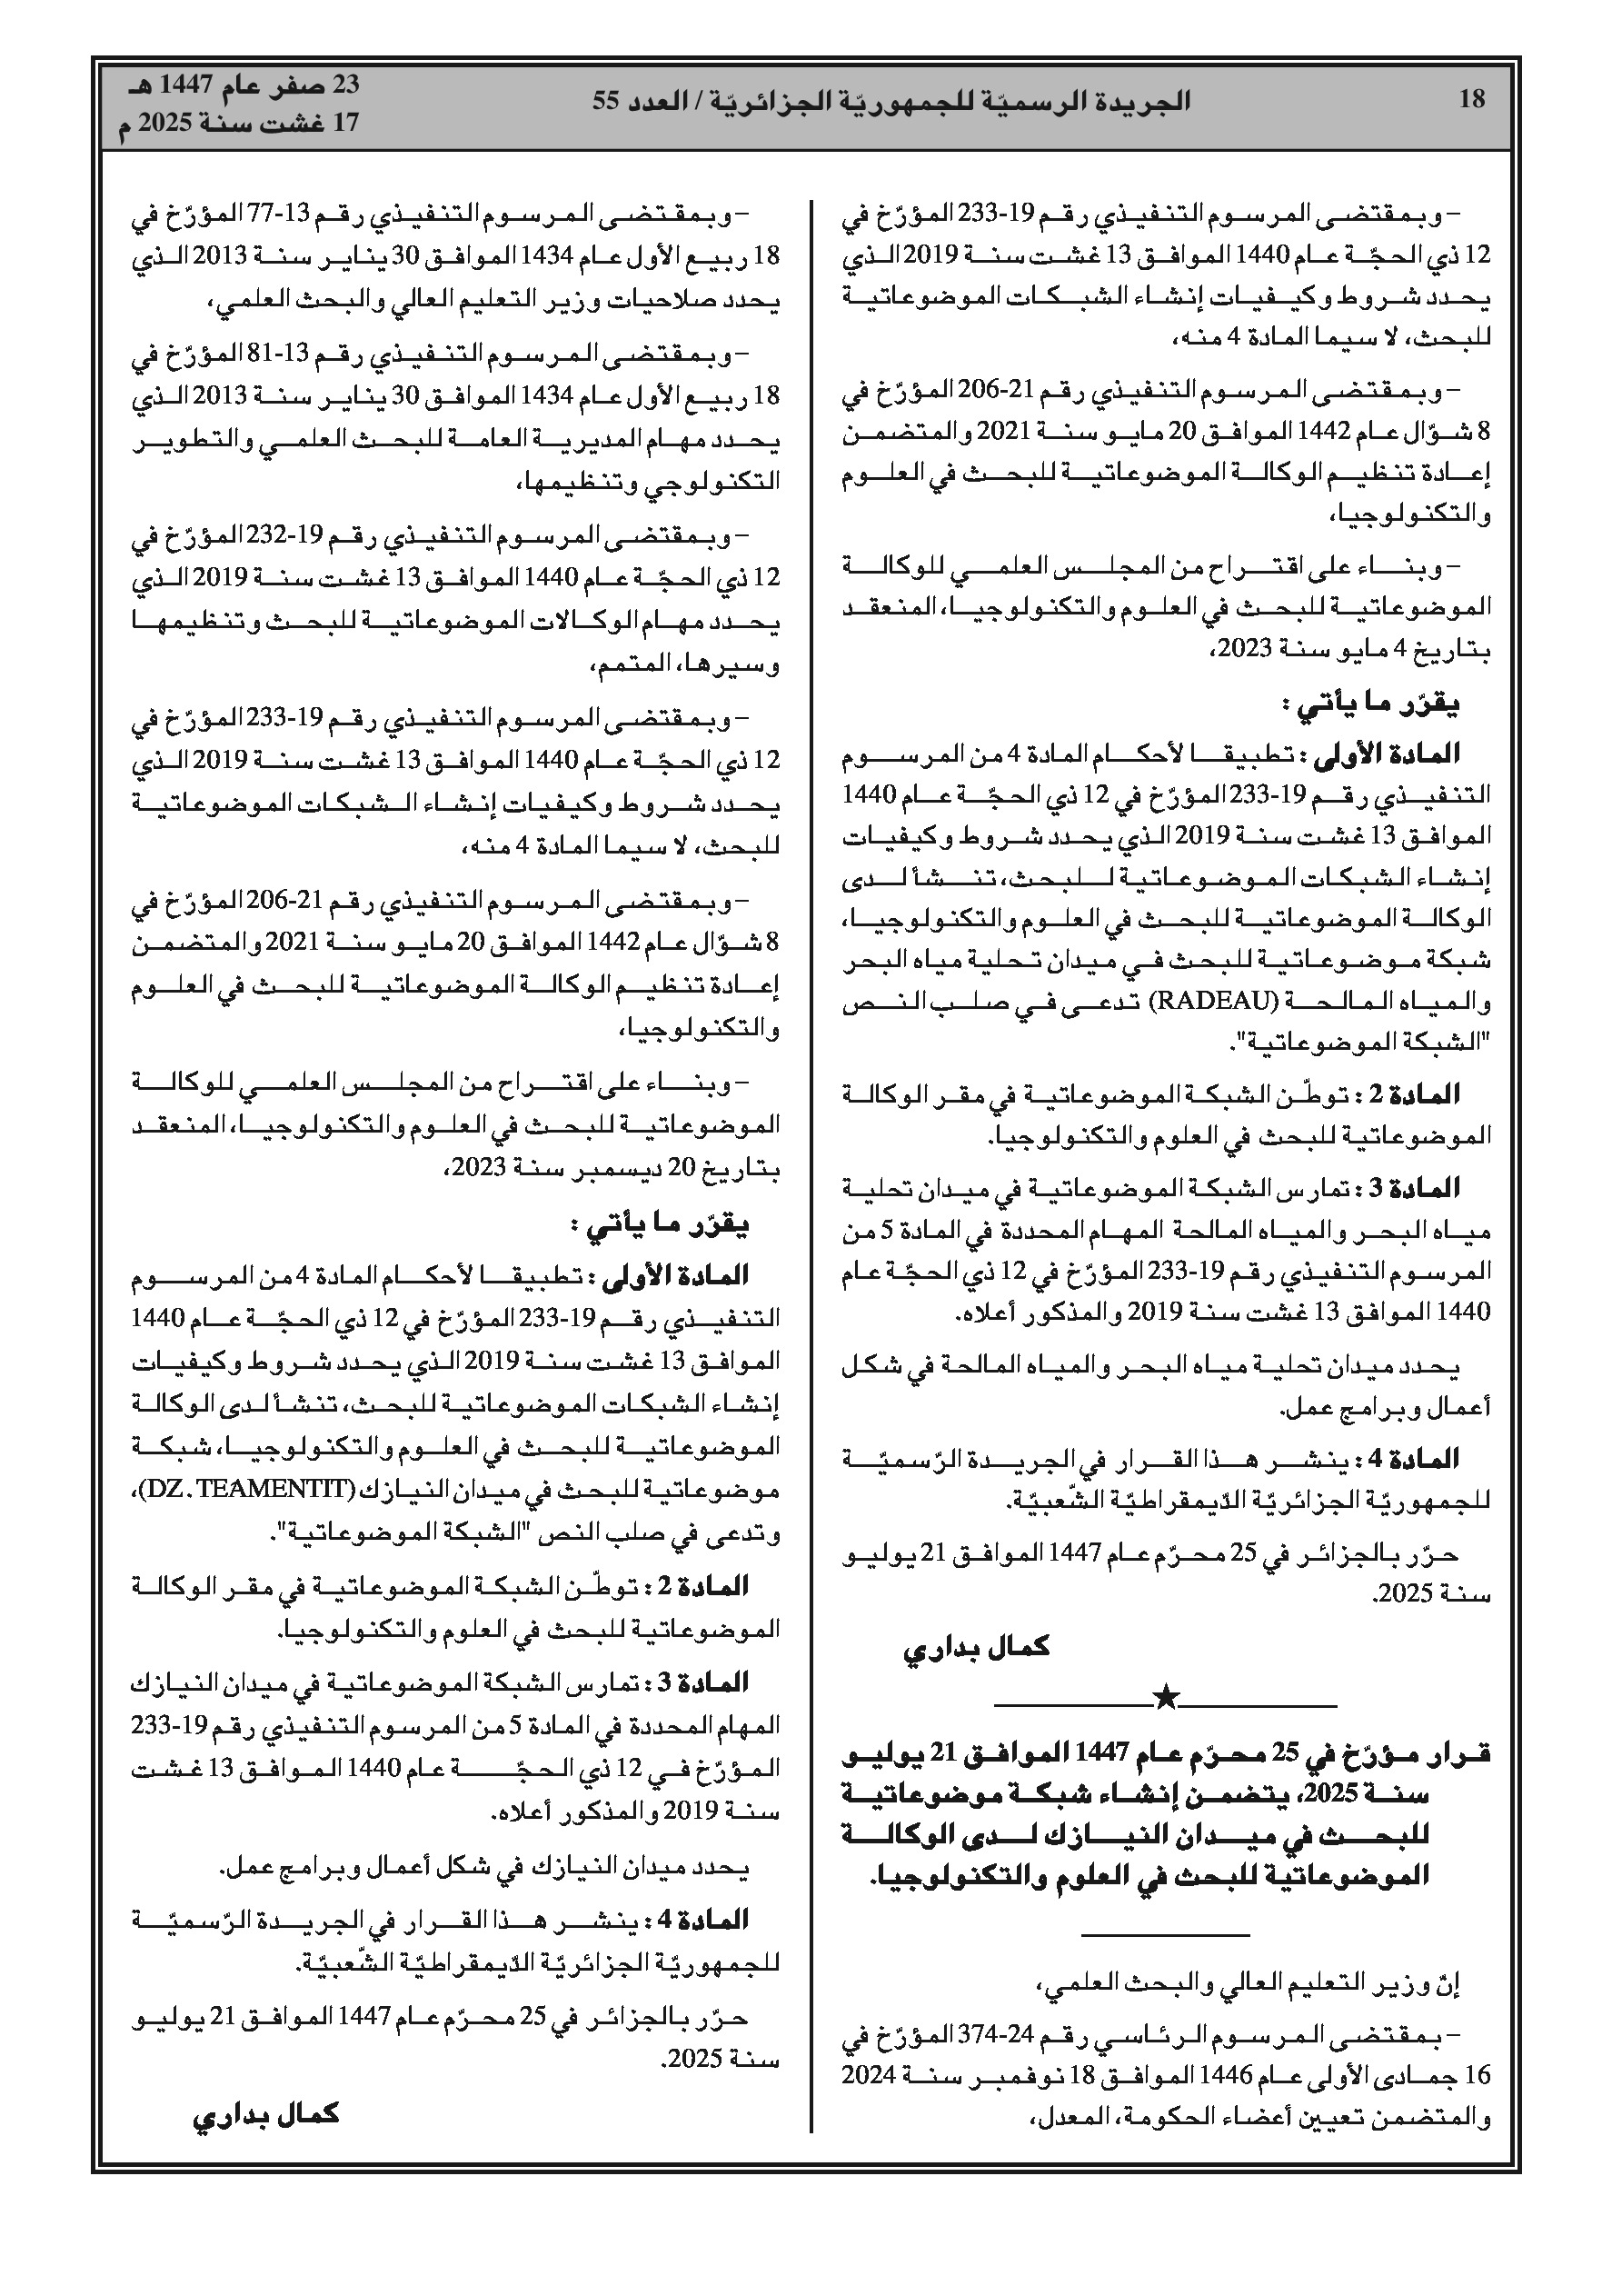 18
الجريدة الرسميّة للجمهوريّة الجزائريّة / العدد 55
23 صفر عام 1447 هـ
17 غشت سنة 2025 م
– وبمقتضى المرسوم التنفيذي رقم 19-233 المؤرّخ في
12 ذي الحجّة عام 1440 الموافق 13 غشت سنة 2019 الذي
يحدد شروط وكيفيات إنشاء الشبكات الموضوعاتية
للبحث، لا سيما المادة 4 منه،
– وبمقتضى المرسوم التنفيذي رقم 21-206 المؤرّخ في
8 شوّال عام 1442 الموافق 20 مايو سنة 2021 والمتضمن
إعادة تنظيم الوكالة الموضوعاتية للبحث في العلوم
والتكنولوجيا،
– وبناء على اقتراح من المجلس العلمي للوكالة
الموضوعاتية للبحث في العلوم والتكنولوجيا، المنعقد
بتاريخ 4 مايو سنة 2023،
يقرّر ما يأتي :
المادة الأولى : تطبيقا لأحكام المادة 4 من المرسوم
التنفيذي رقم 19-233 المؤرّخ في 12 ذي الحجّة عام 1440
الموافق 13 غشت سنة 2019 الذي يحدد شروط وكيفيات
إنشاء الشبكات الموضوعاتية للبحث، تنشأ لدى
الوكالة الموضوعاتية للبحث في العلوم والتكنولوجيا،
شبكة موضوعاتية للبحث في ميدان تحلية مياه البحر
والمياه المالحة (RADEAU) تدعى في صلب النص
"الشبكة الموضوعاتية".
المادة 2 : توطّن الشبكة الموضوعاتية في مقر الوكالة
الموضوعاتية للبحث في العلوم والتكنولوجيا.
المادة 3 : تمارس الشبكة الموضوعاتية في ميدان تحلية
مياه البحر والمياه المالحة المهام المحددة في المادة 5 من
المرسوم التنفيذي رقم 19-233 المؤرّخ في 12 ذي الحجّة عام
1440 الموافق 13 غشت سنة 2019 والمذكور أعلاه.
يحدد ميدان تحلية مياه البحر والمياه المالحة في شكل
أعمال وبرامج عمل.
المادة 4 : ينشر هذا القرار في الجريدة الرّسميّة
للجمهوريّة الجزائريّة الدّيمقراطيّة الشّعبيّة.
حرّر بالجزائر في 25 محرّم عام 1447 الموافق 21 يوليو
سنة 2025.
كمال بداري
قرار مؤرّخ في 25 محرّم عام 1447 الموافق 21 يوليو
سنة 2025، يتضمن إنشاء شبكة موضوعاتية
للبحث في ميدان النيازك لدى الوكالة
الموضوعاتية للبحث في العلوم والتكنولوجيا.
إنّ وزير التعليم العالي والبحث العلمي،
– بمقتضى المرسوم الرئاسي رقم 24-374 المؤرّخ في
16 جمادى الأولى عام 1446 الموافق 18 نوفمبر سنة 2024
والمتضمن تعيين أعضاء الحكومة، المعدل،
– وبمقتضى المرسوم التنفيذي رقم 13-77 المؤرّخ في
18 ربيع الأول عام 1434 الموافق 30 يناير سنة 2013 الذي
يحدد صلاحيات وزير التعليم العالي والبحث العلمي،
– وبمقتضى المرسوم التنفيذي رقم 13-81 المؤرّخ في
18 ربيع الأول عام 1434 الموافق 30 يناير سنة 2013 الذي
يحدد مهام المديرية العامة للبحث العلمي والتطوير
التكنولوجي وتنظيمها،
– وبمقتضى المرسوم التنفيذي رقم 19-232 المؤرّخ في
12 ذي الحجّة عام 1440 الموافق 13 غشت سنة 2019 الذي
يحدد مهام الوكالات الموضوعاتية للبحث وتنظيمها
وسيرها، المتمم،
– وبمقتضى المرسوم التنفيذي رقم 19-233 المؤرّخ في
12 ذي الحجّة عام 1440 الموافق 13 غشت سنة 2019 الذي
يحدد شروط وكيفيات إنشاء الشبكات الموضوعاتية
للبحث، لا سيما المادة 4 منه،
– وبمقتضى المرسوم التنفيذي رقم 21-206 المؤرّخ في
8 شوّال عام 1442 الموافق 20 مايو سنة 2021 والمتضمن
إعادة تنظيم الوكالة الموضوعاتية للبحث في العلوم
والتكنولوجيا،
– وبناء على اقتراح من المجلس العلمي للوكالة
الموضوعاتية للبحث في العلوم والتكنولوجيا، المنعقد
بتاريخ 20 ديسمبر سنة 2023،
يقرّر ما يأتي :
المادة الأولى : تطبيقا لأحكام المادة 4 من المرسوم
التنفيذي رقم 19-233 المؤرّخ في 12 ذي الحجّة عام 1440
الموافق 13 غشت سنة 2019 الذي يحدد شروط وكيفيات
إنشاء الشبكات الموضوعاتية للبحث، تنشأ لدى الوكالة
الموضوعاتية للبحث في العلوم والتكنولوجيا، شبكة
موضوعاتية للبحث في ميدان النيازك (DZ. TEAMENTIT)،
وتدعى في صلب النص "الشبكة الموضوعاتية".
المادة 2 : توطّن الشبكة الموضوعاتية في مقر الوكالة
الموضوعاتية للبحث في العلوم والتكنولوجيا.
المادة 3 : تمارس الشبكة الموضوعاتية في ميدان النيازك
المهام المحددة في المادة 5 من المرسوم التنفيذي رقم 19-233
المؤرّخ في 12 ذي الحجّة عام 1440 الموافق 13 غشت
سنة 2019 والمذكور أعلاه.
يحدد ميدان النيازك في شكل أعمال وبرامج عمل.
المادة 4 : ينشر هذا القرار في الجريدة الرّسميّة
للجمهوريّة الجزائريّة الدّيمقراطيّة الشّعبيّة.
حرّر بالجزائر في 25 محرّم عام 1447 الموافق 21 يوليو
سنة 2025.
كمال بداري